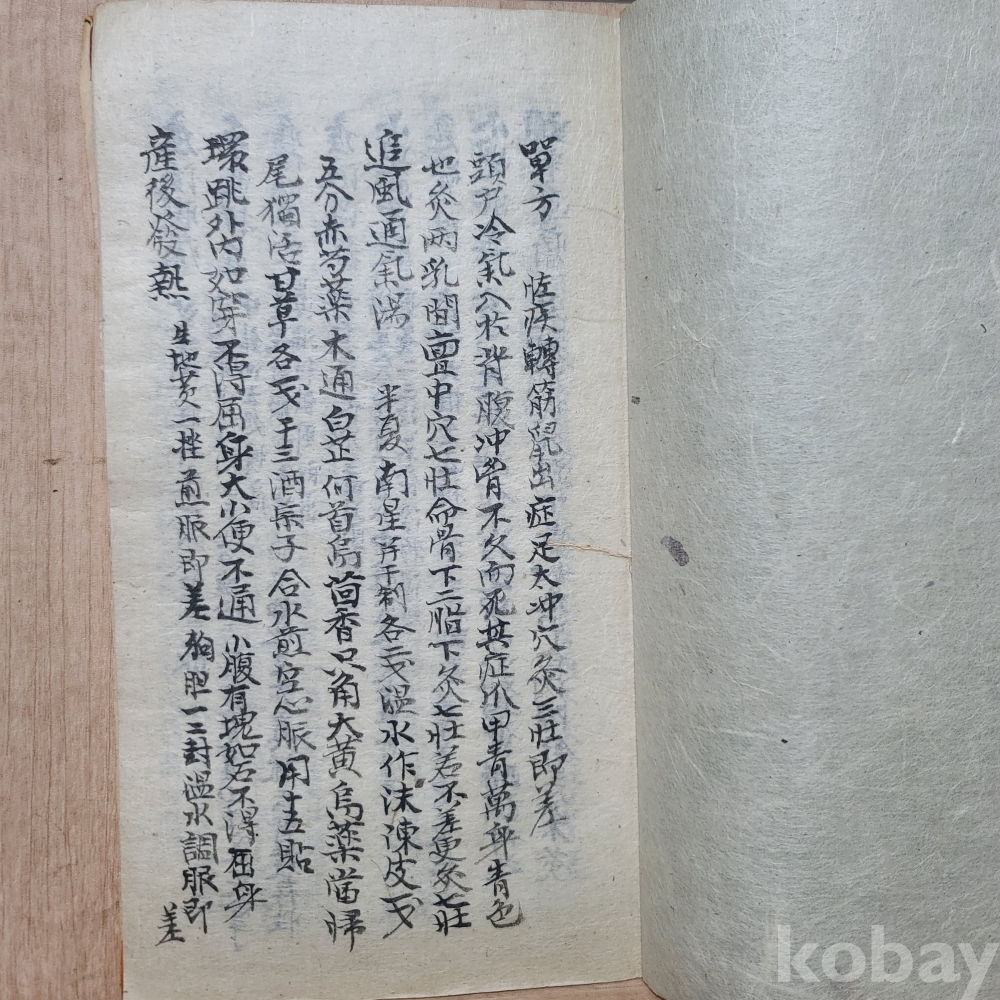 單方 怪疾轉筋鼠出症足太冲穴灸三壯即差
頭尸冷氣入於背腹冲胃不久而死其症爪甲青萬身青色
也灸兩乳間亶中穴七壯命骨下二脂下灸七壯若不差更灸七壯
追風通氣湯 半夏南星并干制各二戔温水作沫陳皮一戔
五分赤芍藥木通白芷何首烏茴香只角大黃烏藥當歸
尾獨活甘草各一戔干三酒 子合水煎空心服用十五貼
環跳外內如 不得屈身大小便不通 小腹有塊如石不得屈身
產後發熱 生地黃一 煎服即差 狗胆一二封温水調服即差
kobay